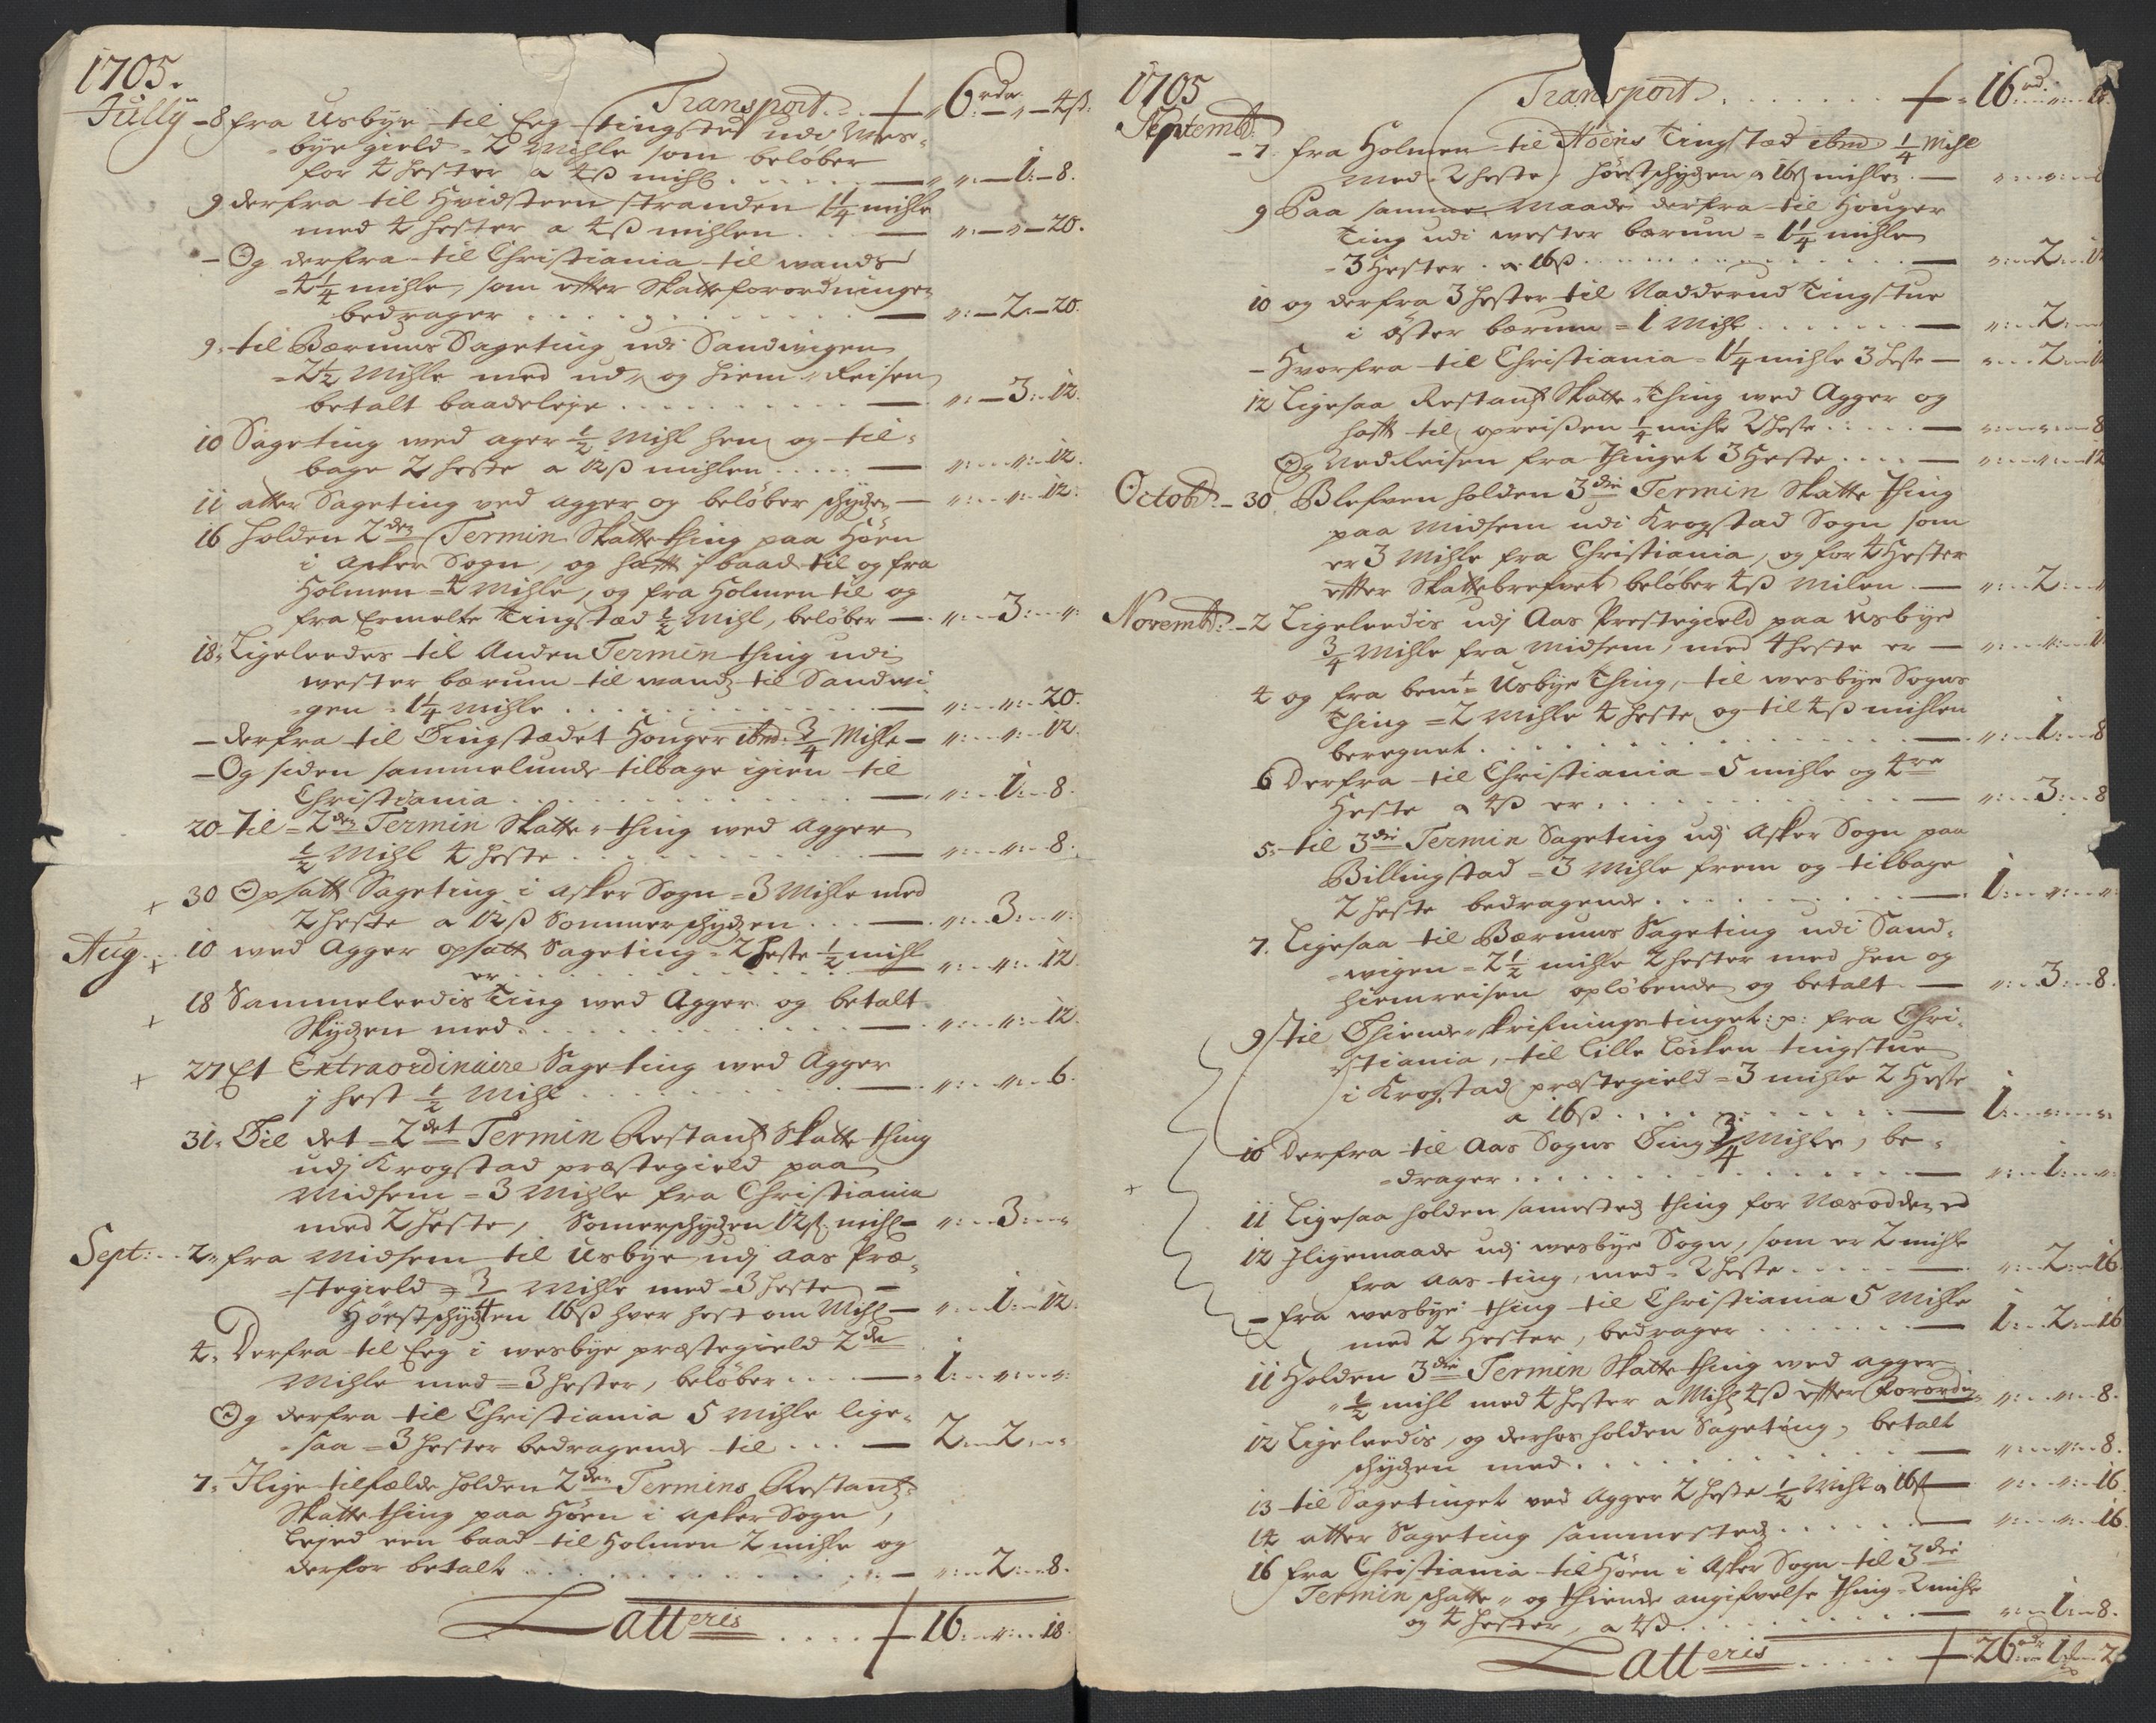 1705.
Transport . . . 6 rdr. – „ – 4 ß.
Jully – 8 fra Usbÿe til Eeg tingsted udi Wes-
bÿe gield = 2 Mihle som beløber
for 4 hester a 4ß mihl . . . . . — „: – 1: – 8.
9 derfra til Hvidsteen stranden 1 1/4 mihle
med 4 hester a 4ß mihlen . . . — „: – „ – 20.
– Og derfra til Christiania til wands
= 4 1/4 mihle, som efter Skatteforordningen
bedrager . . . . . . . . . — „: – 2. – 20.
9. til Bærums Sageting udi Sandwigen
= 2 1/2 Mihle med ud- og hiem-Reisen
betalt baadeleÿe . . . . . . — „: – 3: – 12.
10 Sageting wed ager 1/2 Mihl hen og til-
bage 2 heste a 12ß mihlen . . . . . — „: . . „: – 12.
11 atter Sageting ved agger og beløber schÿdzen — „: . . „: – 12.
16 holden 2den Termin Skattething paa Höen
i Asker Sogn, og hafft j baad til og fra
Holmen = 4 Mihle, og fra Holmen til og
fra Ermelte tingstæd 1/2 Mihl, beløber — „: . . 3: . . „:
18. Ligeleedes til Anden Termin thing udi
wester bærum til wandz til Sandwi-
gen = 1 1/4 mihle . . . . . . . . — „: . . „: – 20.
– derfra til Tingstædet Honger ibid: 3/4 Mihle — „: . . „: – 12.
– Og siden sammelunde tilbage igien til
Christiania . . . . . . . . . — „: . . 1: . . 8.
20 Til = 2den Termin Skatte-thing wed Agger
1/2 Mihl 4 heste . . . . . . . — „: . . „: . . 8.
+ 30 Opsatt Sageting i Asker Sogn = 3 Mihle med
2 heste a 12ß Sommerschÿdzen . . . — „: . . 3: . . „:
Aug. + 10 wed Agger opsatt Sageting = 2 heste 1/2 mihl
er . . . . . . . . . . . — „: . . „: . . 12
+ 18 Sammeleedis ting wed Agger og betalt
Skÿdzen med . . . . . . . . . — „: . . „: . . 12.
+ 27 Et Extraordinaire Sageting wed Agger
j hest 1/2 Mihl . . . . . . . . — „: . . „: . . 6.
31. Til det = 2det Termin Restantz Skatte thing
udj Krogstad præstegield paa
Midsem = 3 Mihle fra Christiania
med 2 heste, Somerschÿdzen 12ß. mihl — „: . . 3: . . „
Sept: . . 2. fra Midsem til Usbÿe udj Aas Præ-
stegield = 3/4 Mihle med = 3 heste —
Hörstschÿdzen 16ß hver hest om Mihl — „: . . 1: . . 12.
4. Derfra til Eeg i wesbÿe præstegield 2de
Mihle med = 3 hester, beløber . . . . — 1: . . „: . . „:
Og derfra til Christiania 5 Mihle lige-
saa = 3 hester bedragende til . . . — 2: . . 2: . . „
7. J lige tilfælde holden 2den Termins Restantz
Skatte thing paa Höen i Asker Sogn,
Leÿed een baad til Holmen 2 mihle og
derfor betalt . . . . . . . . . — „: . . 2: . . 8.
Latteris . . . . 16: . . „: . . 18.
1705
Transport . . . . . . . 16 rd: . . „: . . 18.
Septembr:
– 7. fra Holmen til Höens tingstæd ibid 1/4 Mihl
med 2 heste, hörstschÿdzen a 16ß mihlen . —
9 Paa samme Maade derfra til Honger
ting udi wester bærum = 1 1/4 mihle
= 3 Hester . a 16ß . . . . . . . . — „: . . 2: . .
10 og derfra 3 hester til Nadderud tingstue
i öster bærum = 1 Mihl . . . . . . . — „: . . 2: . .
– Hvorfra til Christiania = 1 1/4 mihle 3 heste — „: . . 2: . .
12 Ligesaa Restantz Skatte-thing wed Agger og
hafft til opreisen 1/4 mihle 2 heste . . . . . — „: . . „: . . 8
Og Nedreisen fra thinget 3 heste . . . . — „: . . „: . . 12
Octobr: – 30 Blefven holden 3die Termin Skatte thing
paa Midsem udi Krogstad Sogn som
er 3 Mihle fra Christiania, og for 4 Hester
efter Skattebrefvet beløber 4ß Milen . — „: . . 2: . . „
Novembr: – 2 Ligeleedis udj Aas Prestegield paa Usbÿe
3/4 Mihle fra Midsem, med 4 heste er —
4 og fra bemte Usbÿe thing, til wesbÿe Sogns
thing = 2 Mihle 4 heste og til 4ß mihlen
beregnet . . . . . . . . . . . — „: . . 1: . . 8
6 Derfra til Christiania = 5 mihle og 4re
Heste a 4ß er . . . . . . . . . . — „: . . 3: . . 8
5. til 3die Termin Sageting udj Asker Sogn paa
Billingstad = 3 Mihle frem og tilbage
2 heste bedragende . . . . . . . . — 1: . . „: . . „:
7. Ligesaa til Bærums Sageting udi Sand-
wigen = 2 1/2 mihle 2 hester med hen og
hiemreisen opløbende og betalt — „: . . 3: . . 8.
9 til Thiende-skrifnings tinget: p: fra Chri-
stiania, til Lille Löiken tingstue
i Krogstad præstegield = 3 mihle 2 Heste
a 16ß . . . . . . . . . . — 1: . . „: . . „:
10 Derfra til Aas Sogns Ting 3/4 Mihle, be-
drager . . . . . . . . . . . . — „: . . 1: . . „:
+ 11 Ligesaa holden samestedz thing for Næsodden
12 Jligemaade udj wesbÿe Sogn, som er 2 mihle
fra Aas ting, med 2 heste . . . . . — „: . . 2: . . 16.
– fra wesbÿe thing til Christiania 5 Mihle
med 2 Hester, bedrager . . . . . . — 1: . . 2: . . 16
11 Holden 3die Termin Skatte thing wed agger
1/2 mihl med 4 hester a Mihl 4ß efter forordn. „: . . „: . . 8.
12 Ligeleedis, og derhos holden Sageting, betalt
schÿdzen med . . . . . . . . . — „: . . „: . . 8.
13 til Sagetinget ved Agger 2 heste 1/2 Mihl a 16ß — „: . . „: . . 16.
14 atter Sageting sammestedz . . . . . . — „: . . „: . . 16.
16 fra Christiania til Höen i Asker Sogn til 3die
Termin schatte- og thiende angifvelse thing = 2 mihle
og 4 hester, a 4ß . . . . . . . . . — „: . . 1: . . 8.
Latteris . . . . . 26 rdr: . . 1: . . 2